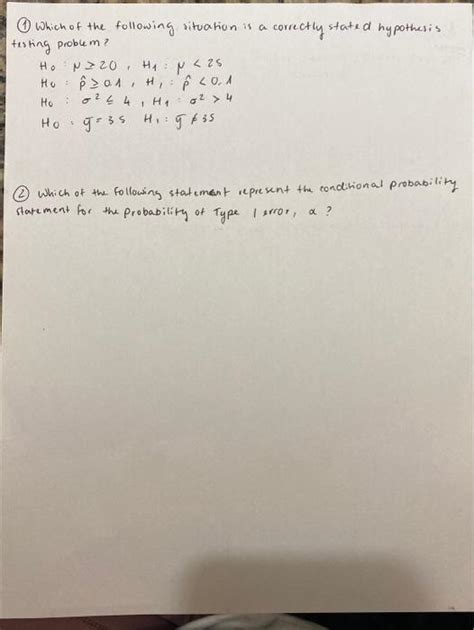 ① Which of the following situation is a correctly stated hypothesis
testing problem?
H₀ : μ ≥ 20 , H₁ : μ < 25
H₀ : p̂ ≥ 0.1 , H₁ : p̂ < 0.1
H₀ : σ² ≤ 4 , H₁ : σ² > 4
H₀ : ȳ = 35 H₁ : ȳ ≠ 35
② Which of the following statement represent the conditional probability
statement for the probability of Type 1 error, α ?